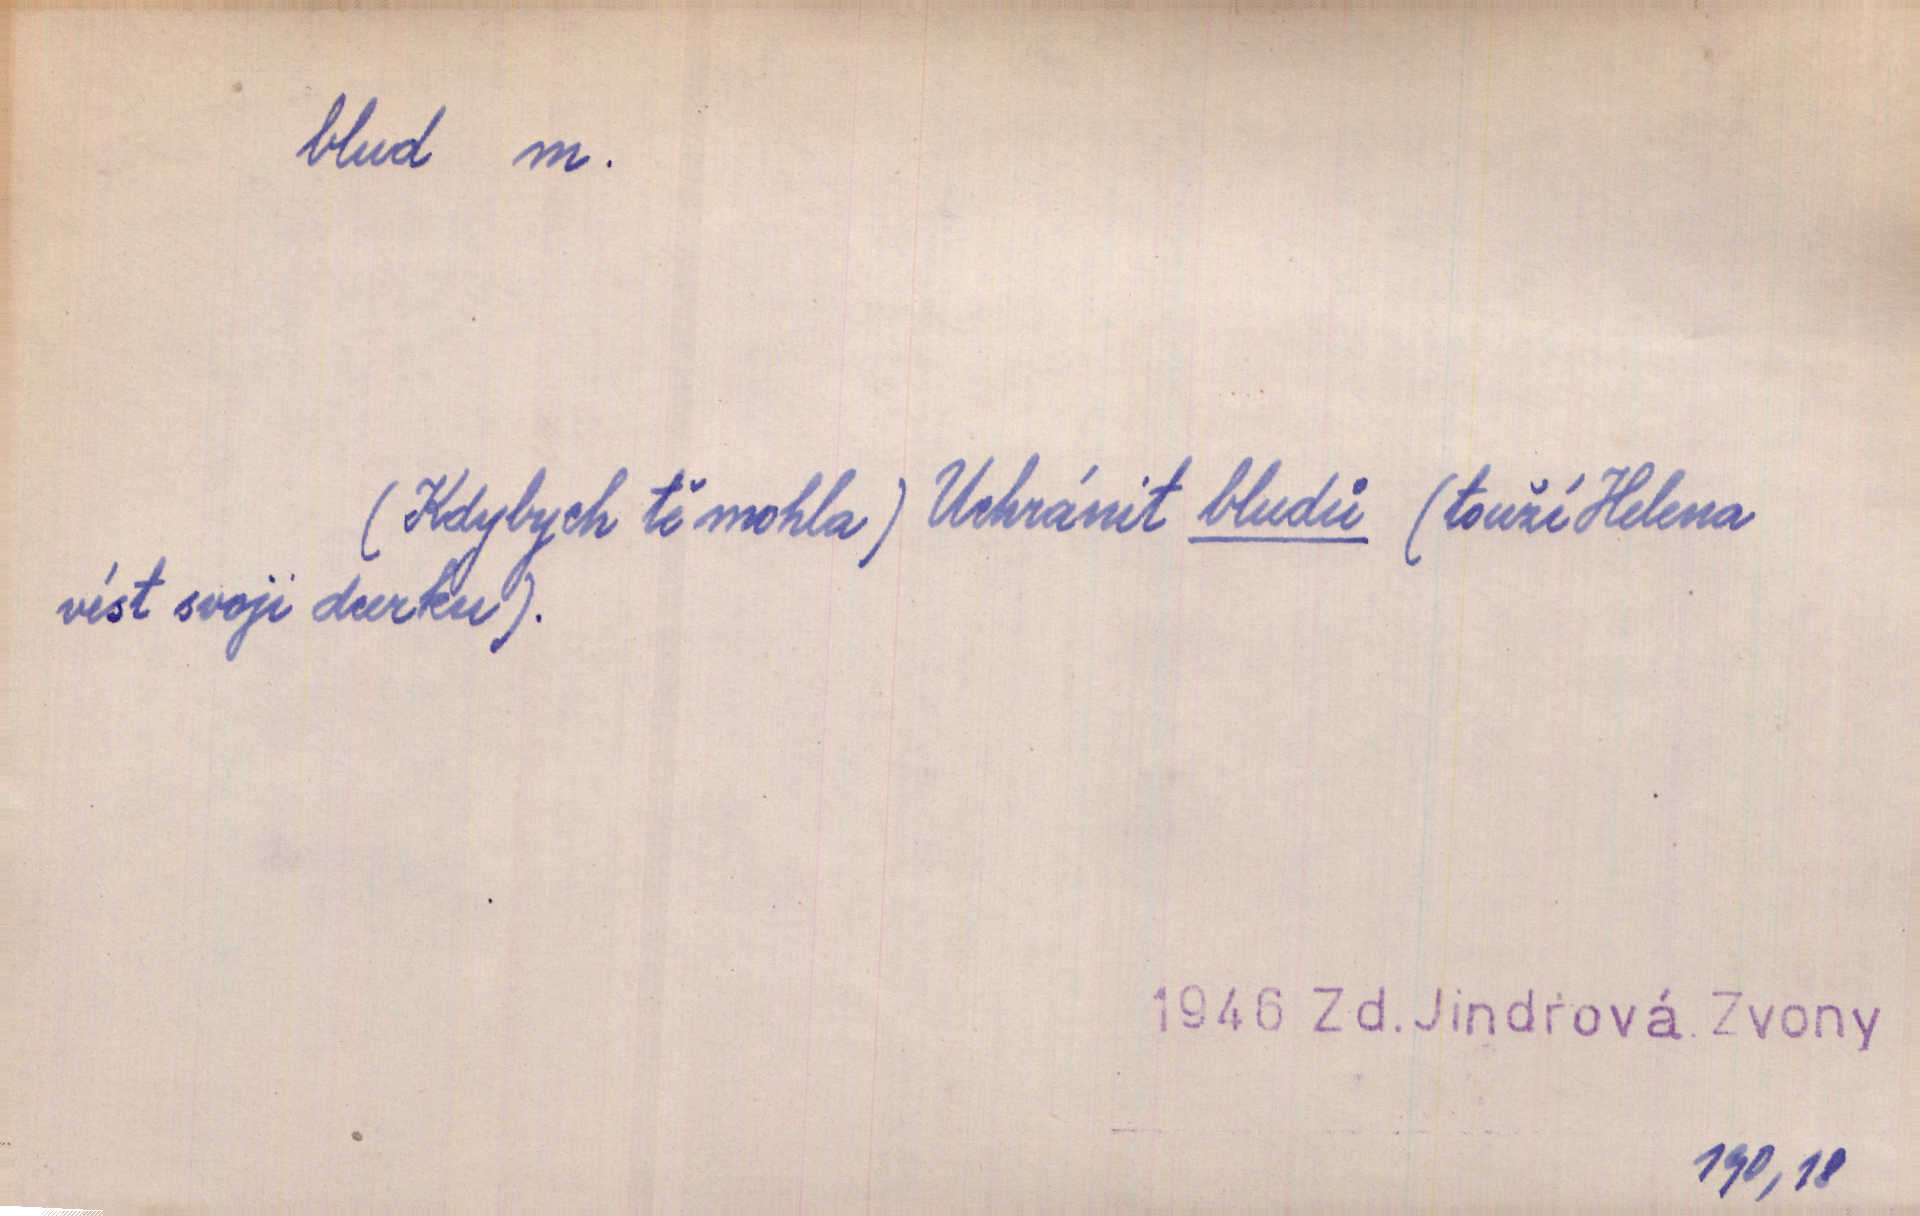 blud m.
(Kdybych tě mohla) Uchránit bludů (touží Helena
vést svoji dcerku).
1946 Zd. Jindrová Zvony
190,18